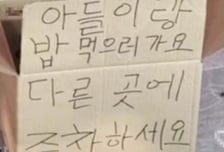 아들이랑
밥 먹으러가요
다른 곳에
주차하세요